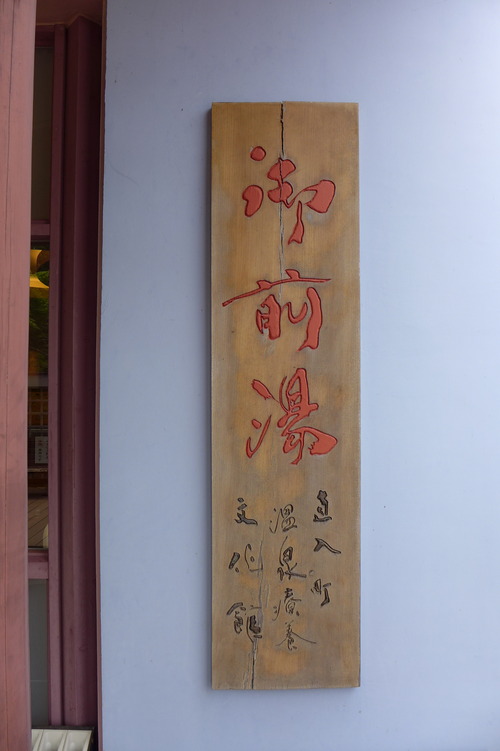 御前湯
直入町
温泉療養
文化館